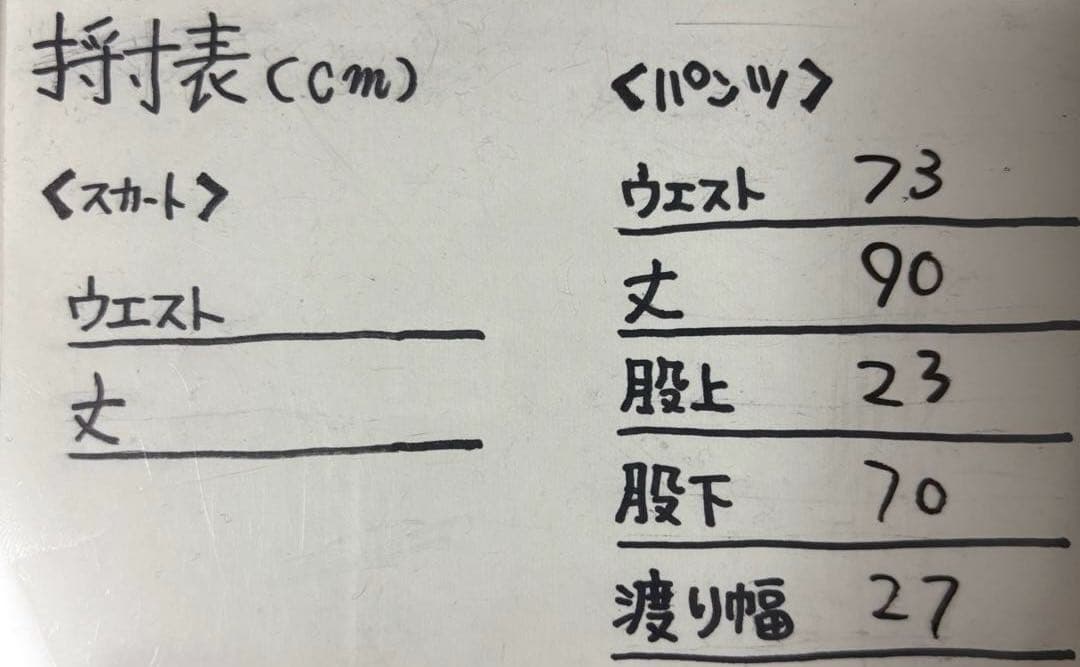 採寸表(cm)
<スカート>
ウエスト
丈
<パンツ>
ウエスト 73
丈 90
股上 23
股下 70
渡り幅 27